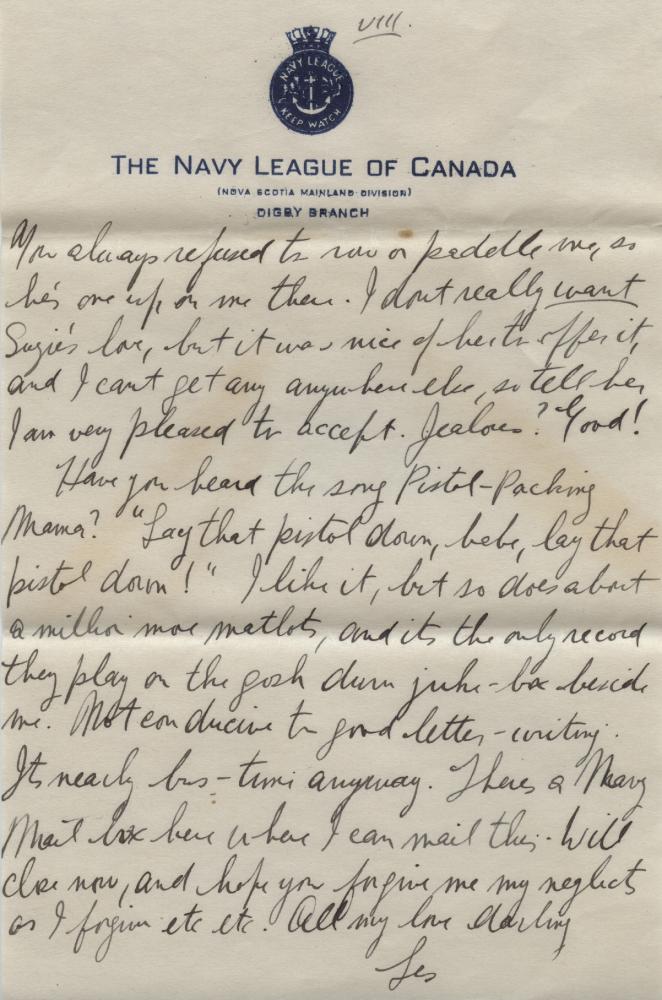 VIII.
NAVY LEAGUE
KEEP WATCH
THE NAVY LEAGUE OF CANADA
(NOVA SCOTIA MAINLAND DIVISION)
DIGBY BRANCH
You always refused to row or paddle me, so
he's one up on me there. I don't really want
Suzie's love, but it was nice of her to offer it,
and I can't get any anywhere else, so tell her
I am very pleased to accept. Jealous? Good!
Have you heard the song Pistol-Packing
Mama? "Lay that pistol down, bebe, lay that
pistol down!" I like it, but so does about
a million more matlots, and its the only record
they play on the gosh durn juke-box beside
me. Not conducive to good letter-writing.
Its nearly bus-time anyway. Theres a Navy
Mail box here where I can mail this. Will
close now, and hope you forgive me my neglects
as I forgive etc etc. All my love darling
Les